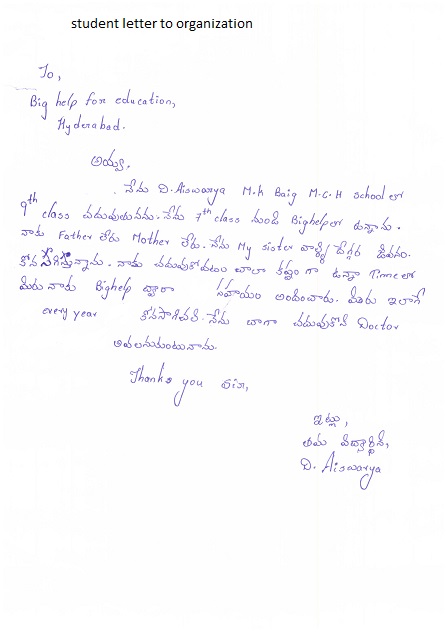 student letter to organization
To,
Big help for education,
Hyderabad.
అయ్యా,
నేను D. Aiswarya M.k Baig M.C.H school లో
9th class చదువుతునను. నేను 7th class నుండి Bighelp లో ఉన్నాను.
నాకు Father లేరు Mother లేరు. నేను My sister వాళ్ళ దగ్గర జీవనం.
కొన సాగిస్తున్నాను. నాకు చదువుకోవటం చాలా కష్టం గా ఉన్నా Time లో
మీరు నాకు Bighelp ద్వారా సహాయం అందించారు. మీరు ఇలాగే
every year కొనసాగించాలి. నేను బాగా చదువుకొని Doctor
అవలనుకుంటునాను.
Thanks you sir,
ఇట్లు,
తమ విద్యార్థిని,
D. Aiswarya